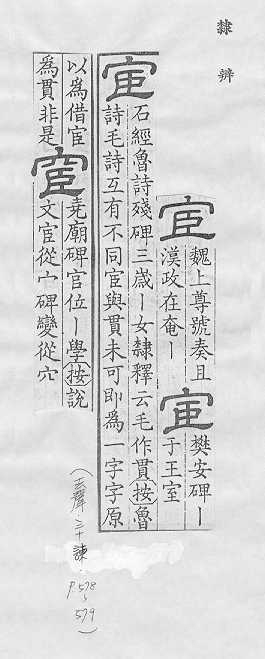 隸辨
宦
魏上尊號奏且
漢政在奄丨
宦
樊安碑丨
于王室
宦
石經魯詩殘碑三歲丨女隸釋云毛作貫按魯
詩毛詩互有不同宦與貫未可即為一字字原
以為借宦
為貫非是
宦
堯廟碑官位丨學按說
文宦從宀碑變從穴
(去聲·三十諫·
P.578
579)